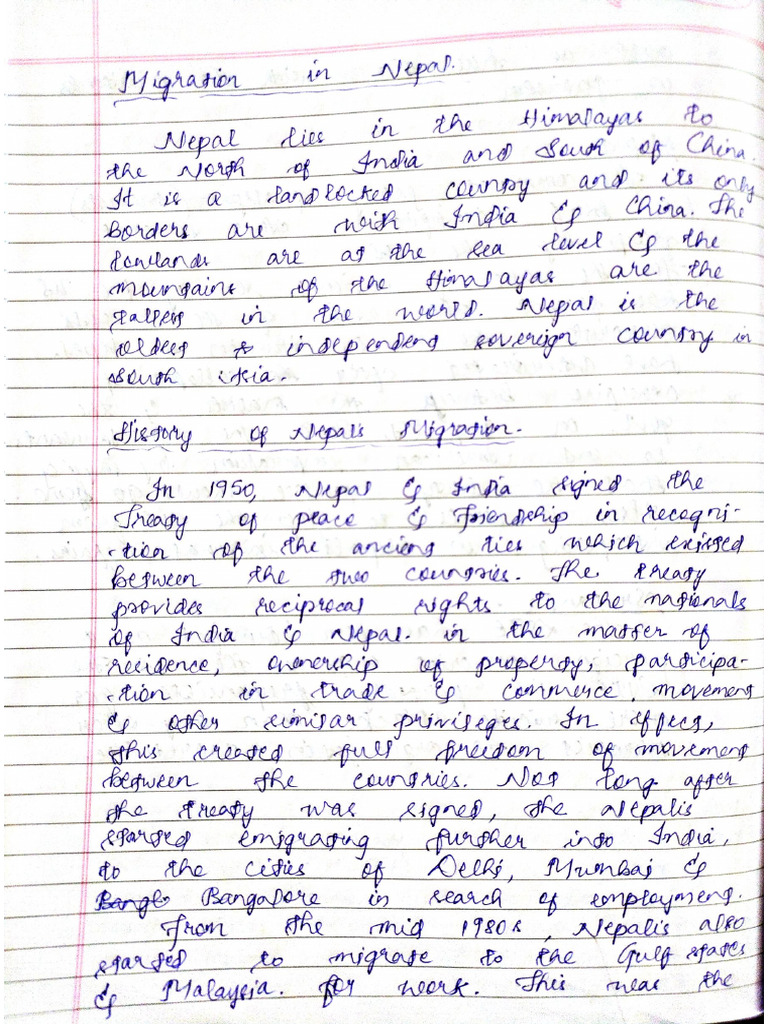 Migration in Nepal.
Nepal lies in the Himalayas to
the North of India and South of China.
It is a landlocked country and its only
borders are with India & China. The
lowlands are at the sea level & the
mountains of the Himalayas are the
tallest in the world. Nepal is the
oldest independent sovereign country in
South Asia.
History of Nepals Migration.
In 1950, Nepal & India signed the
Treaty of peace & friendship in recogni-
-tion of the ancient ties which existed
between the two countries. The treaty
provides reciprocal rights to the nationals
of India & Nepal. in the matter of
residence, ownership of property, participa-
-tion in trade & commerce, movement
& other similar privileges. In effect,
this created full freedom of movement
between the countries. Not long after
the treaty was signed, the Nepalis
started emigrating further into India,
to the cities of Delhi, Mumbai &
Bangalore in search of employment.
From the mid 1980s, Nepalis also
started to migrate to the Gulf states
& Malaysia. for work. This was the